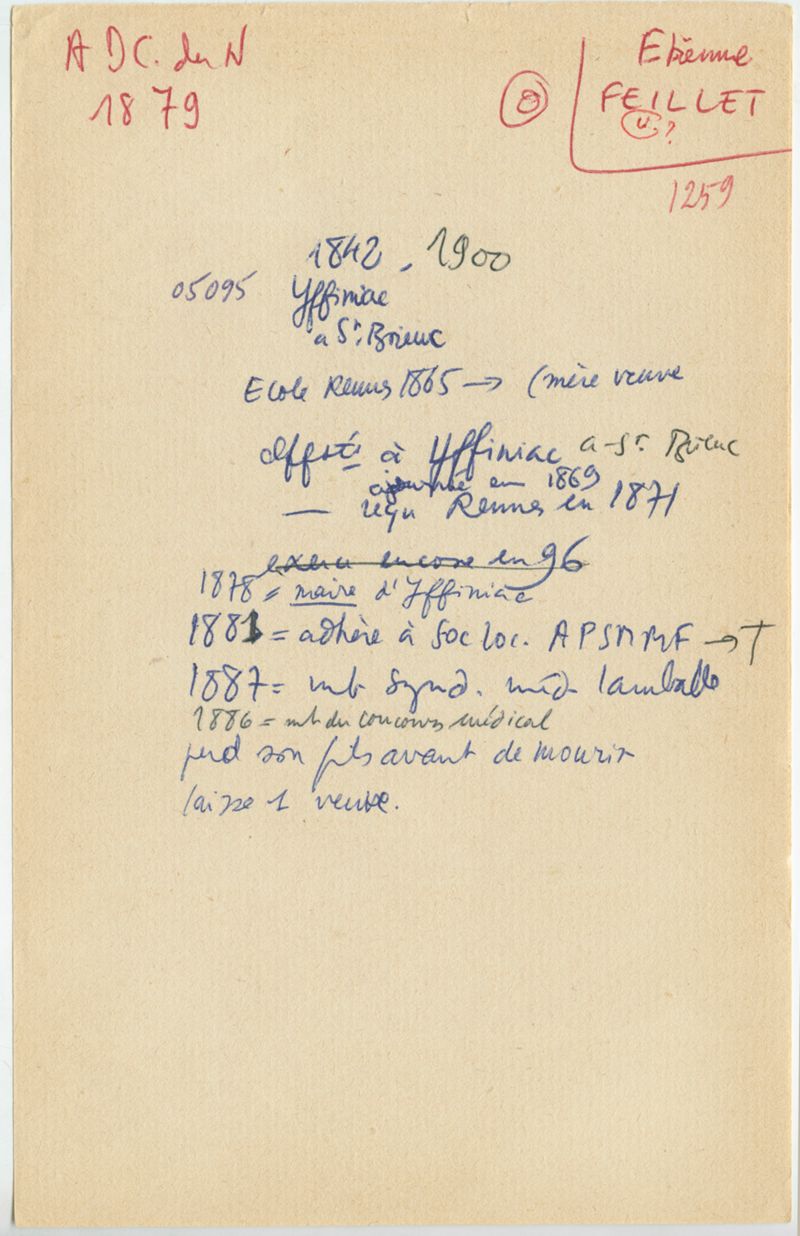 A D C. du N
1879
Etienne
FEILLET
u ?
1259
1842 - 1900
05095 Yffiniac
a St. Brieuc
Ecole Rennes 1865 → (mère veuve
à Yffiniac a St. Brieuc
ajourné en 1869
— reçu Rennes en 1871
exerce encore en 96
1878 = maire d'Yffiniac
1881 = adhère à Soc loc. APSMMF → †
1887 = mb Synd. méd. Lamballe
1886 = mb du concours médical
perd son fils avant de mourir
laisse 1 veuve.